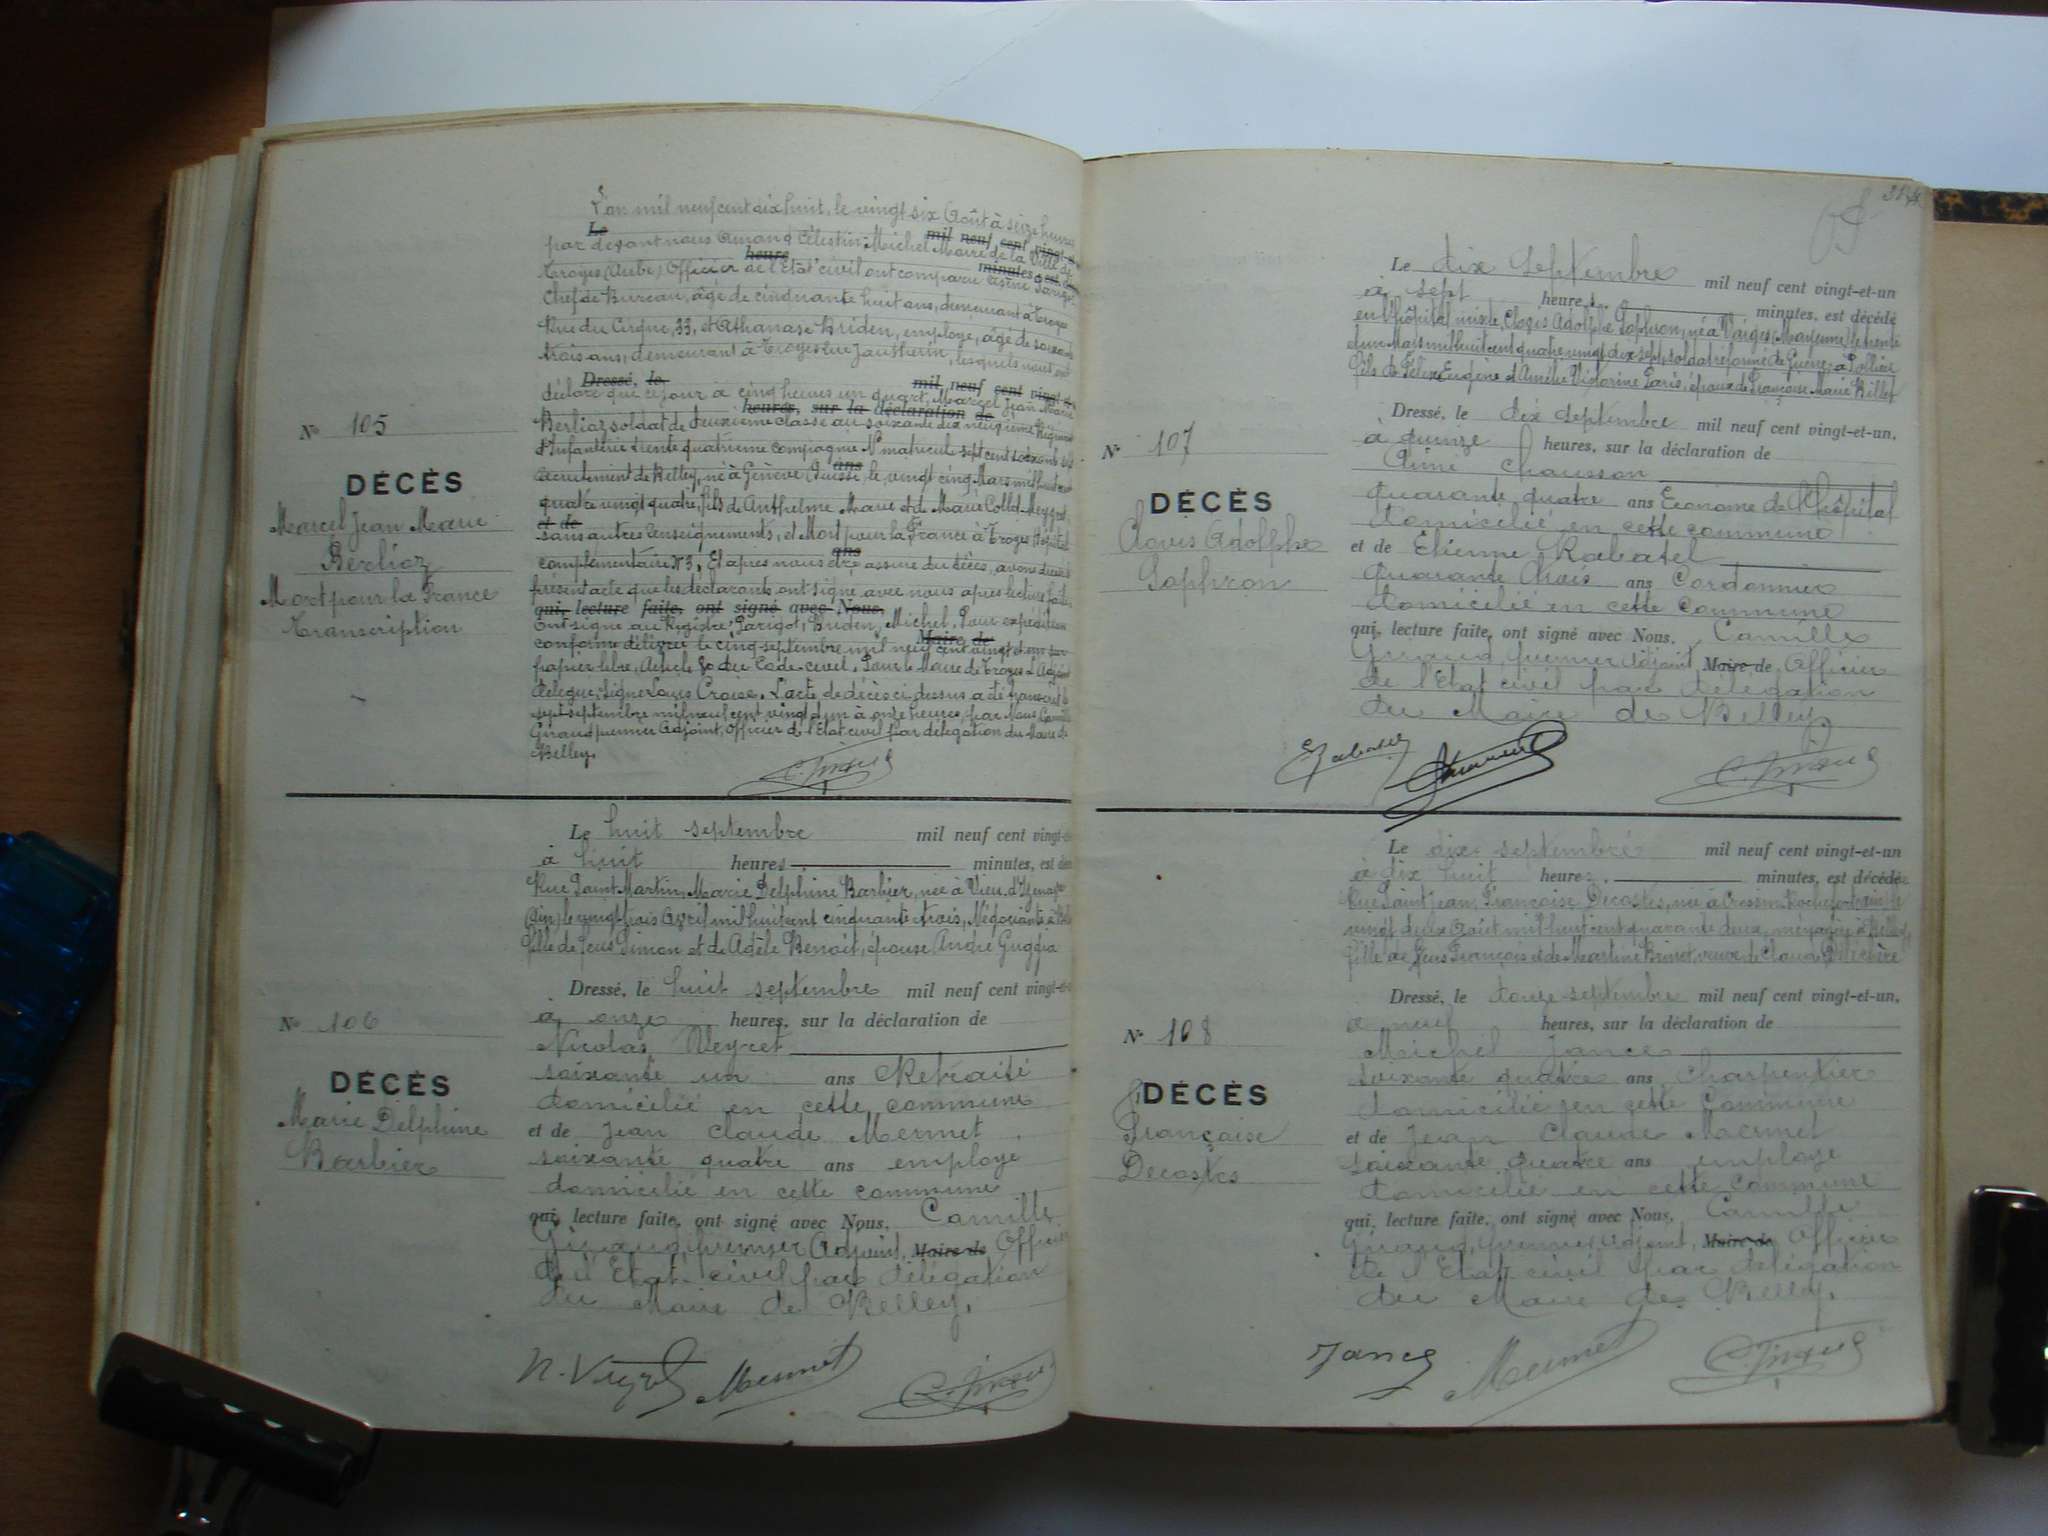 L'an mil neuf cent dix huit, le vingt six Août à seize heures
Le mil neuf cent vingt-et-un
par devant nous Amand Célestin Michel Maire de la Ville de
heure minutes, est
Troyes (Aube) Officier de l'Etat civil ont comparu
Chef de Bureau, âgé de cinquante huit ans, demeurant à Troyes
Rue du Cirque, 33, et Athanase Briden, employé, âgé de soixante
trois ans, demeurant à Troyes rue lesquels nous ont
Dressé, le mil neuf cent vingt-et
déclaré que ce jour à cinq heures un quart, Marcel Jean Marie
heures, sur la déclaration de
Berlioz soldat de deuxième classe au soixante dix neuvième Régiment
d'Infanterie trente quatrième compagnie N° matricule sept cent
ans
recrutement de Belley, né à Genève Suisse, le vingt cinq Mars mil huit cent
quatre vingt quatre, fils de Anthelme Marie et de Marie Collet-Meygret,
et de
sans autres renseignements, est Mort pour la France à Troyes Hôpital
ans
complémentaire N° 3. Et après nous être assuré du décès, avons dressé
présent acte que les déclarants ont signé avec nous après lecture faite,
qui, lecture faite, ont signé avec Nous,
ont signé au Registre: Parigot, Briden, Michel. Pour expédition
Maire de
conforme délivrée le cinq septembre mil neuf cent vingt et un sur
papier libre, Article 80 du Code civil. Pour le Maire de Troyes L'Adjoint
délégué, Signé Louis Croise. L'acte de décès ci dessus a été transcrit le
sept septembre mil neuf cent vingt et un à onze heures, par Nous Camille
Giraud premier Adjoint, Officier de l'Etat civil par délégation du Maire de
Belley.
N° 105
DÉCÈS
Marcel Jean Marie
Berlioz
Mort pour la France
Transcription
C. Giraud
Le huit septembre mil neuf cent vingt-et
à huit heures minutes, est
Rue Saint Martin, Marie Delphine Barbier, née à Vieu d'Izenave
(Ain) le vingt trois Avril mil huit cent cinquante trois, Négociante à
fille de feus Simon et de Adèle Benoit, épouse André Guggia
Dressé, le huit septembre mil neuf cent vingt-et
à onze heures, sur la déclaration de
Nicolas Veyret
soixante un ans Retraité
domicilié en cette commune
et de Jean Claude Mermet
soixante quatre ans employé
domicilié en cette commune
qui, lecture faite, ont signé avec Nous, Camille
Giraud, premier Adjoint, Maire de Officier
de l'Etat civil par délégation
du Maire de Belley.
N° 106
DÉCÈS
Marie Delphine
Barbier
N. Veyret Mermet C. Giraud
314
Le dix septembre mil neuf cent vingt-et-un
à sept heures minutes, est décédé
en l'hôpital mixte, Clovis Adolphe Sophron, né à Vaiges (Mayenne) le trente
et un Mars mil huit cent quatre vingt dix sept, soldat réformé de Guerre, à
fils de Félix Eugène et Amélie Victorine Paris, époux de Françoise Marie Billet
Dressé, le dix septembre mil neuf cent vingt-et-un,
à quinze heures, sur la déclaration de
Aimé Chausson
quarante quatre ans Econome de l'hôpital
domicilié en cette commune
et de Etienne Rabatel
quarante trois ans Cordonnier
domicilié en cette commune
qui, lecture faite, ont signé avec Nous, Camille
Giraud premier Adjoint, Maire de Officier
de l'Etat civil par délégation
du Maire de Belley
N° 107
DÉCÈS
Clovis Adolphe
Sophron
E Rabatel C. Giraud
Le dix septembre mil neuf cent vingt-et-un
à dix huit heures minutes, est décédée
Rue Saint Jean, Françoise Decostes, née à Cressin Rochefort le
vingt deux Août mil huit cent quarante deux, ménagère à Belley
fille de feus François et de Martine Brinet, veuve de Claude
Dressé, le douze septembre mil neuf cent vingt-et-un,
à neuf heures, sur la déclaration de
Michel Jance
soixante quatre ans charpentier
domicilié en cette commune
et de Jean Claude Mermet
soixante quatre ans employé
domicilié en cette commune
qui, lecture faite, ont signé avec Nous, Camille
Giraud, premier Adjoint, Maire de Officier
de l'Etat civil par délégation
du Maire de Belley.
N° 108
DÉCÈS
Françoise
Decostes
Jance Mermet C. Giraud